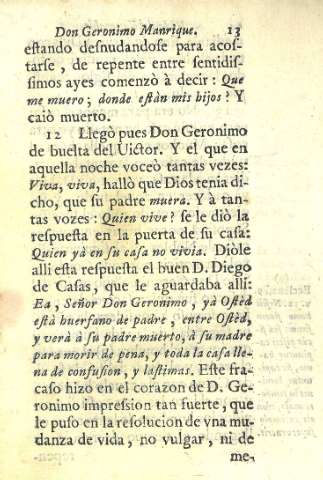 Don Geronimo Manrique. 13
eſtando deſnudandoſe para acoſ-
tarſe, de repente entre ſentidiſ-
ſimos ayes comenzò à decir: Que
me muero; donde eſtàn mis hijos? Y
caiò muerto.
12 Llegò pues Don Geronimo
de buelta del Uictor. Y el que en
aquella noche voceò tantas vezes:
Viva, viva, hallò que Dios tenia di-
cho, que ſu padre muera. Y à tan-
tas vozes: Quien vive? ſe le diò la
reſpueſta en la puerta de ſu caſa:
Quien yà en ſu caſa no vivia. Diòle
alli eſta reſpueſta el buen D. Diego
de Caſas, que le aguardaba alli:
Ea, Señor Don Geronimo, yà Oſtèd
eſtà huerfano de padre, entre Oſtèd,
y verà à ſu padre muerto, à ſu madre
para morir de pena, y toda la caſa lle-
na de confuſion, y laſtimas. Eſte fra-
caſo hizo en el corazon de D. Ge-
ronimo impreſsion tan fuerte, que
le puſo en la reſolucion de vna mu-
danza de vida, no vulgar, ni de
me-